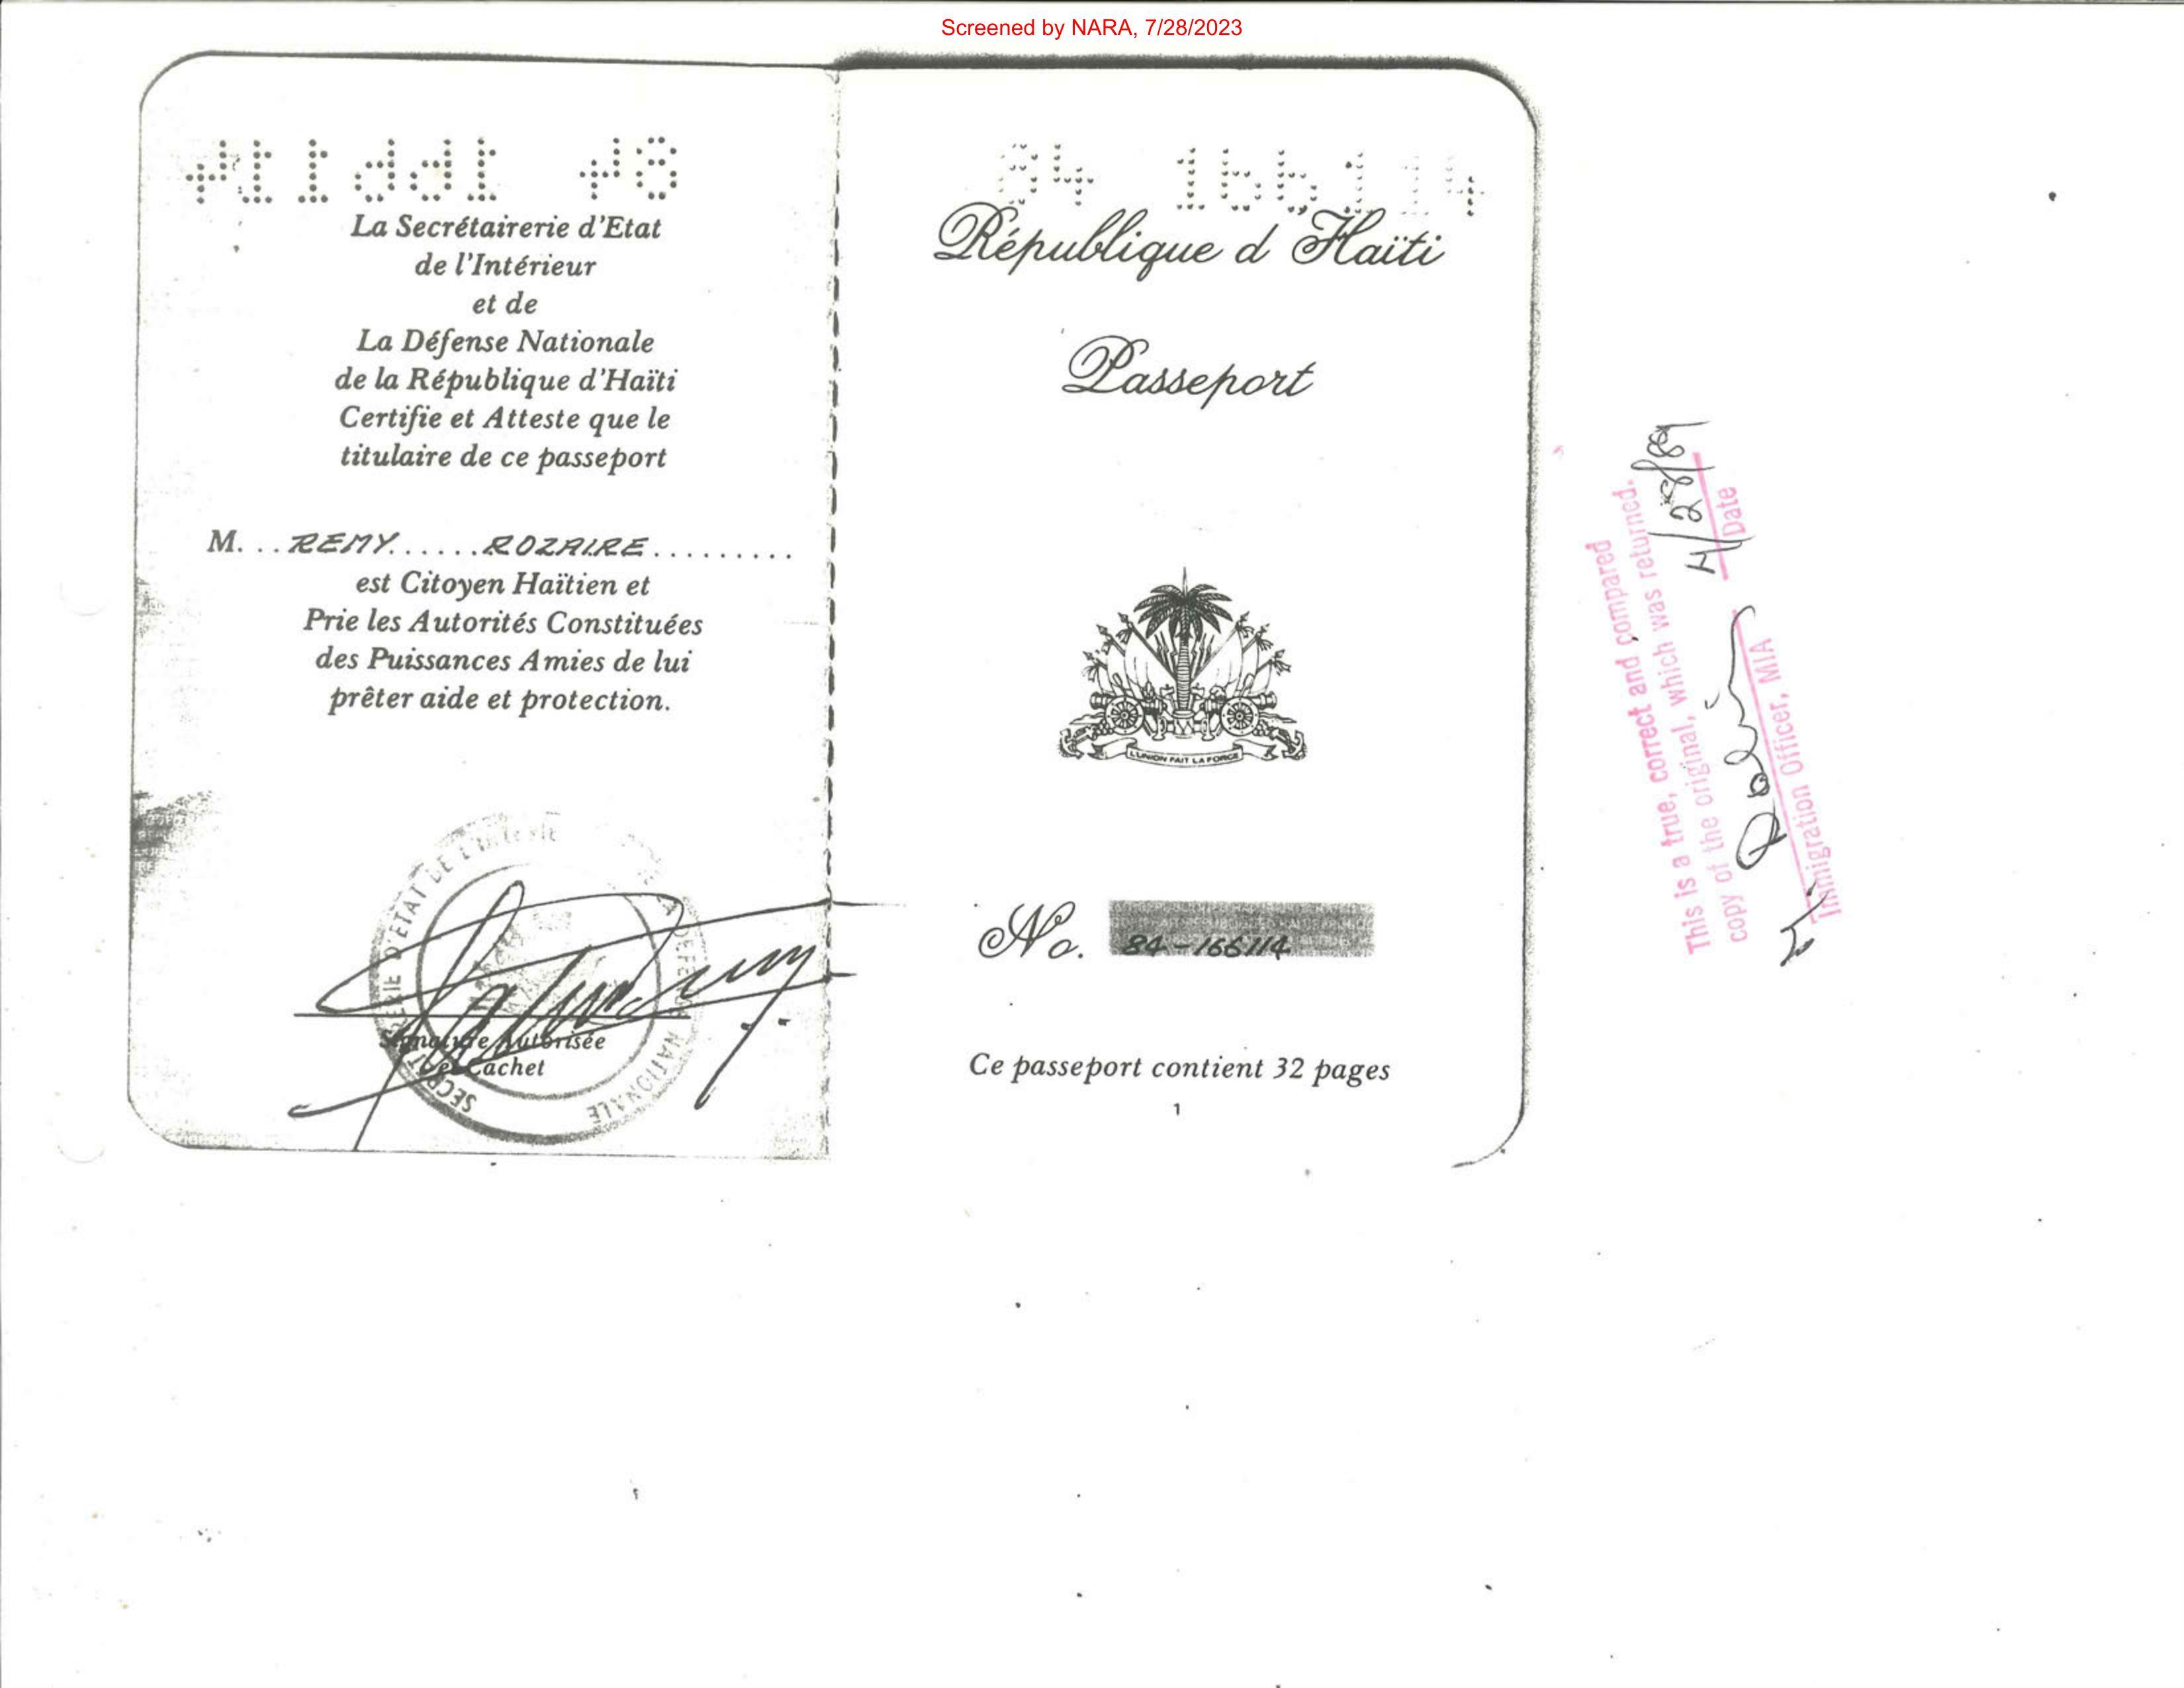 Screened by NARA, 7/28/2023
La Secrétairerie d'Etat
de l'Intérieur
et de
La Défense Nationale
de la République d'Haïti
Certifie et Atteste que le
titulaire de ce passeport
M. . . REMY. . . . . . ROZAIRE . . . . . . . . .
est Citoyen Haïtien et
Prie les Autorités Constituées
des Puissances Amies de lui
prêter aide et protection.
SECRETAIRERIE D'ETAT DE L'INTERIE
DEFENSE NATIONALE
Signature Autorisée
et Cachet
84 166114
République d'Haïti
Passeport
L'UNION FAIT LA FORCE
No. 84-166114
Ce passeport contient 32 pages
1
This is a true, correct and compared
copy of the original, which was returned.
4/28/89
Date
Immigration Officer, MIA